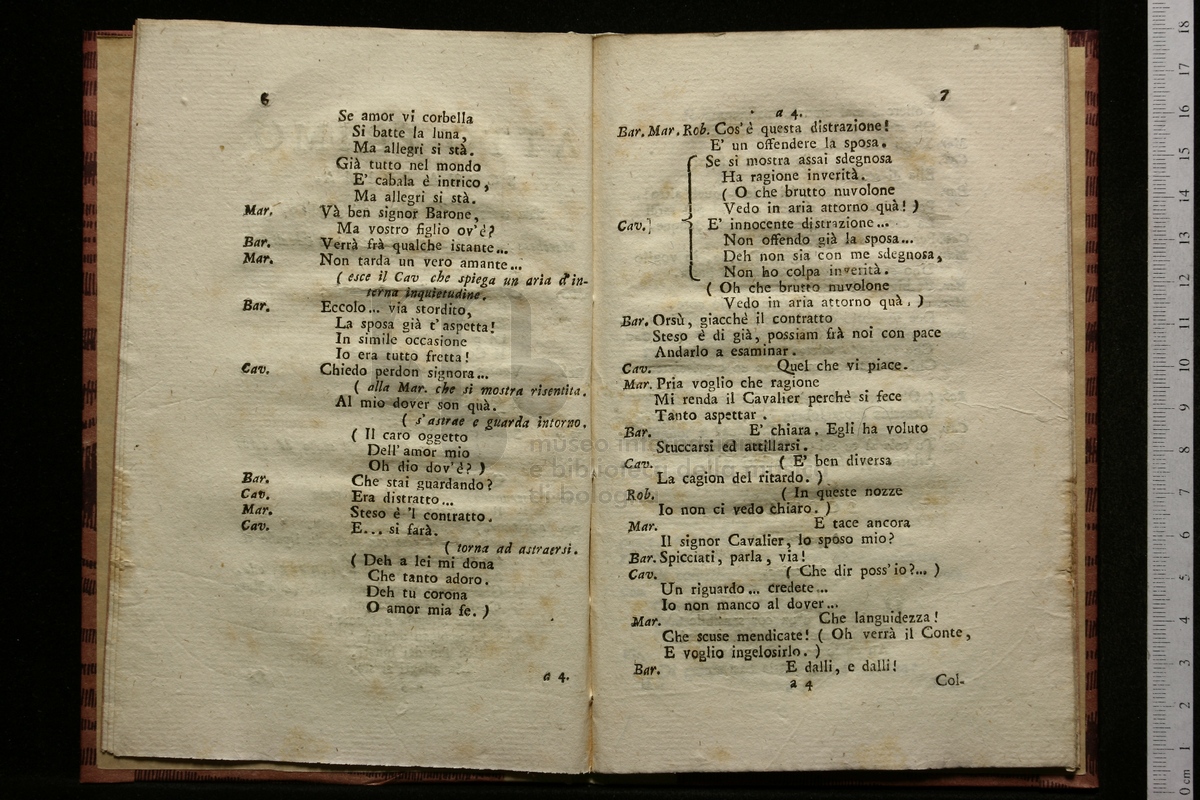 6
Se amor vi corbella
Si batte la luna,
Ma allegri si stà.
Già tutto nel mondo
E' cabala è intrico,
Ma allegri si stà.
Mar. Và ben signor Barone,
Ma vostro figlio ov'è?
Bar. Verrà frà qualche istante...
Mar. Non tarda un vero amante...
( esce il Cav che spiega un aria d'in-
terna inquietudine.
Bar. Eccolo... via stordito,
La sposa già t'aspetta!
In simile occasione
Io era tutto fretta!
Cav. Chiedo perdon signora...
( alla Mar. che si mostra risentita.
Al mio dover son quà.
( s'astrae e guarda intorno.
( Il caro oggetto
Dell'amor mio
Oh dio dov'è? )
Bar. Che stai guardando?
Cav. Era distratto...
Mar. Steso è 'l contratto.
Cav. E... si farà.
( torna ad astraersi.
( Deh a lei mi dona
Che tanto adoro.
Deh tu corona
O amor mia fe. )
a 4.
7
a 4.
Bar. Mar. Rob. Cos'è questa distrazione!
E' un offendere la sposa.
Se si mostra assai sdegnosa
Ha ragione inverità.
( O che brutto nuvolone
Vedo in aria attorno quà! )
Cav.] E' innocente distrazione...
Non offendo già la sposa...
Deh non sia con me sdegnosa,
Non ho colpa inverità.
( Oh che brutto nuvolone
Vedo in aria attorno quà. )
Bar. Orsù, giacchè il contratto
Steso è di già, possiam frà noi con pace
Andarlo a esaminar.
Cav. Quel che vi piace.
Mar. Pria voglio che ragione
Mi renda il Cavalier perchè si fece
Tanto aspettar.
Bar. E' chiara. Egli ha voluto
Stuccarsi ed attillarsi.
Cav. ( E' ben diversa
La cagion del ritardo. )
Rob. ( In queste nozze
Io non ci vedo chiaro. )
Mar. E tace ancora
Il signor Cavalier, lo sposo mio?
Bar. Spicciati, parla, via!
Cav. ( Che dir poss'io?... )
Un riguardo... credete...
Io non manco al dover...
Mar. Che languidezza!
Che scuse mendicate! ( Oh verrà il Conte,
E voglio ingelosirlo. )
Bar. E dalli, e dalli!
a 4 Col-
museo
e biblioteca della
di bologna
0 cm 1 2 3 4 5 6 7 8 9 10 11 12 13 14 15 16 17 18